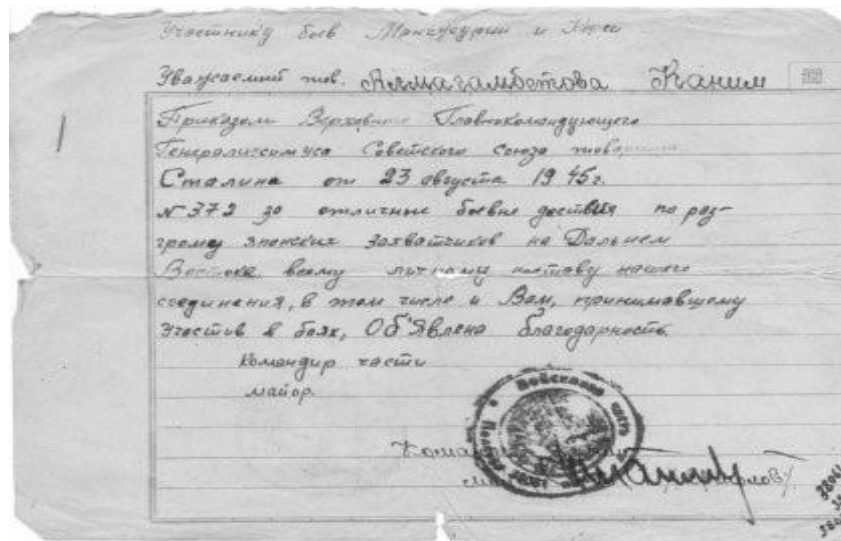 Участнику боев Манчжурии и
Уважаемый тов. Алмагамбетова Каним
Приказом Верховного Главнокомандующего
Генералиссимуса Советского Союза товарища
Сталина от 23 августа 1945г.
№372 за отличные боевые действия по раз-
грому японских захватчиков на Дальнем
Востоке, всему личному составу нашего
соединения, в том числе и Вам, принимавшему
участие в боях, Об'явлена благодарность.
Командир части
майор
Войсковая часть